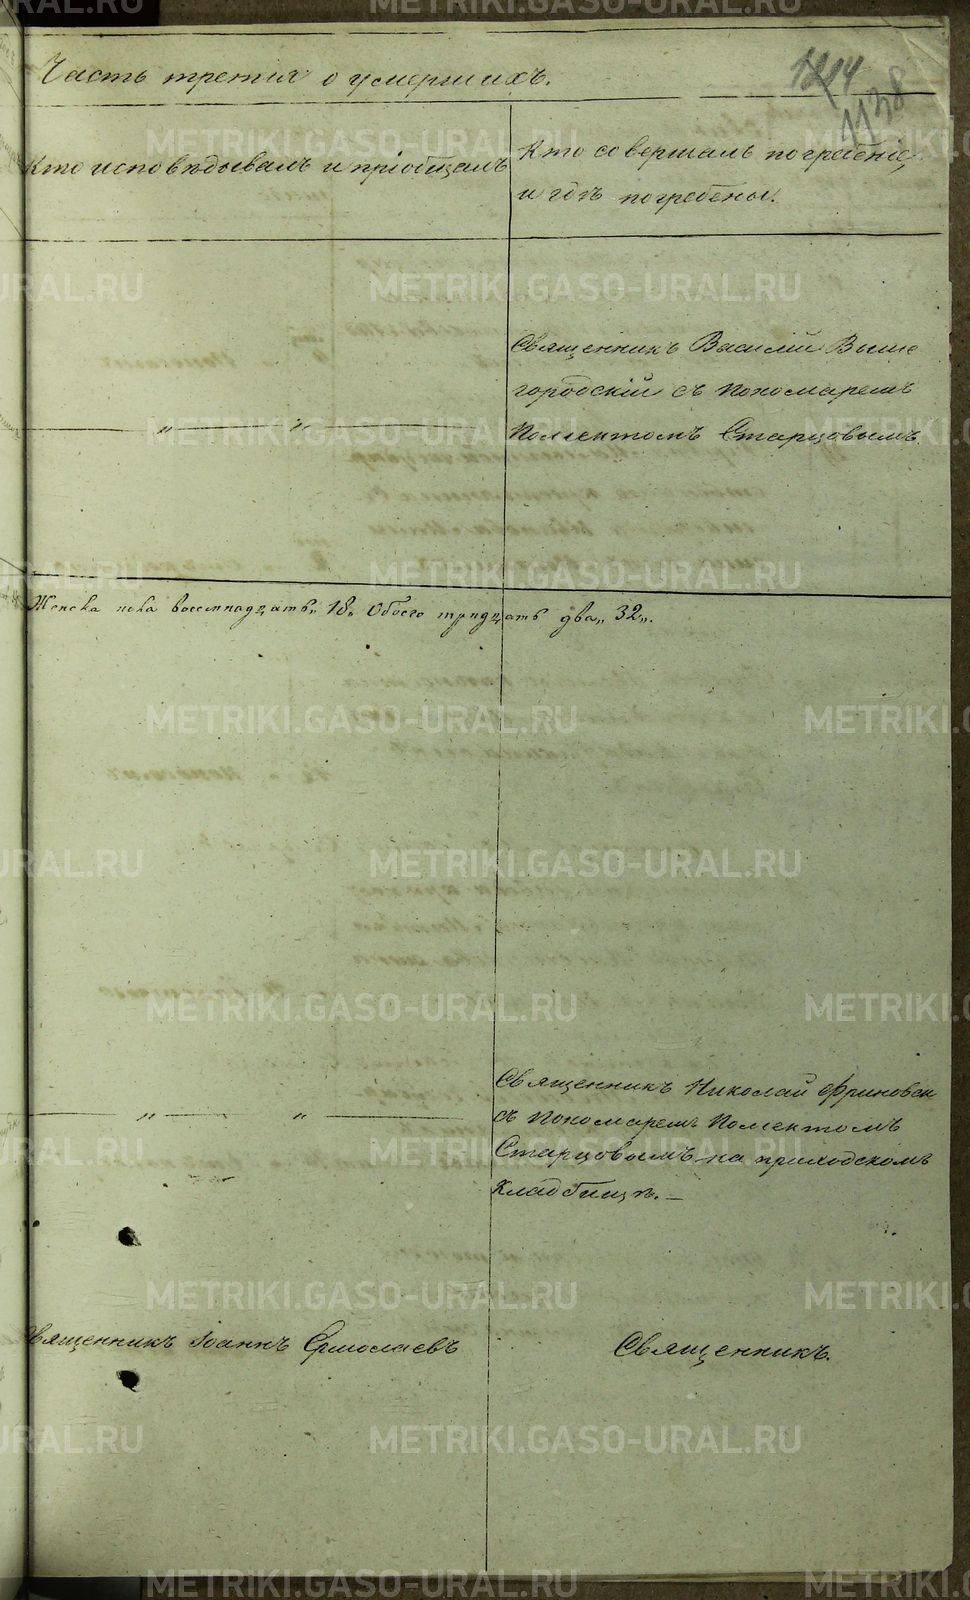 Часть третия о умершихъ.
1214
1138
Кто исповѣдывалъ и пріобщалъ
Кто совершалъ погребеніе,
и гдѣ погребены.
Священникъ Василій Выше
городскій съ Пономаремъ
— „ — „ — Полиектомъ Старцовымъ.
Женска пола восемнадцать „ 18 „ Обоего тридцать два „ 32 „.
Священникъ Николай Фриновск
— „ — „ — съ Пономаремъ Полиектомъ
Старцовымъ на приходскомъ
кладбищѣ. —
Священникъ Іоаннъ Ермолаевъ
Священникъ.
METRIKI.GASO-URAL.RU